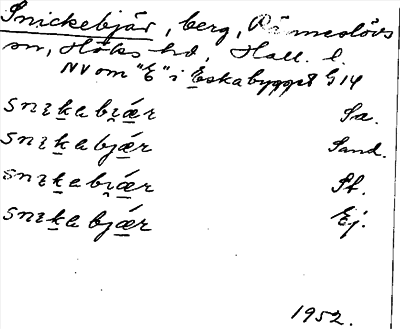 Snickebjär, berg, Ränneslövs
sn, Höks hd, Hall. l.
NV om "E" i Eskabygget G 14
snɪka bi̯ǽr Sa.
snɪka bjær Sand.
snɪka bi̯ǽr St.
snɪka bjær Ej.
1952.